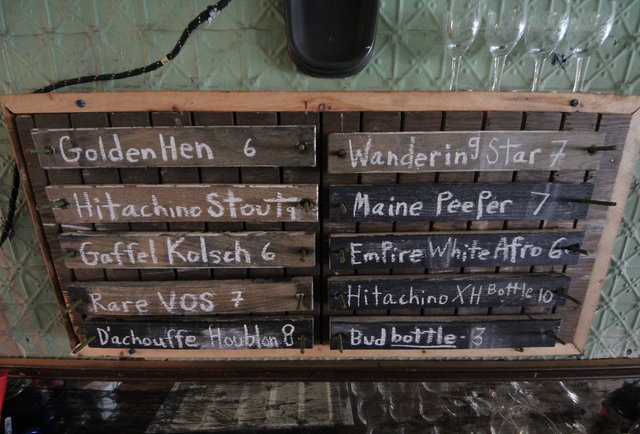 Golden Hen 6
Hitachino Stout 7
Gaffel Kolsch 6
Rare VOS 7
D'achouffe Houblon 8
Wandering Star 7
Maine Peeper 7
Empire White Afro 6
Hitachino XH Bottle 10
Bud bottle - 3